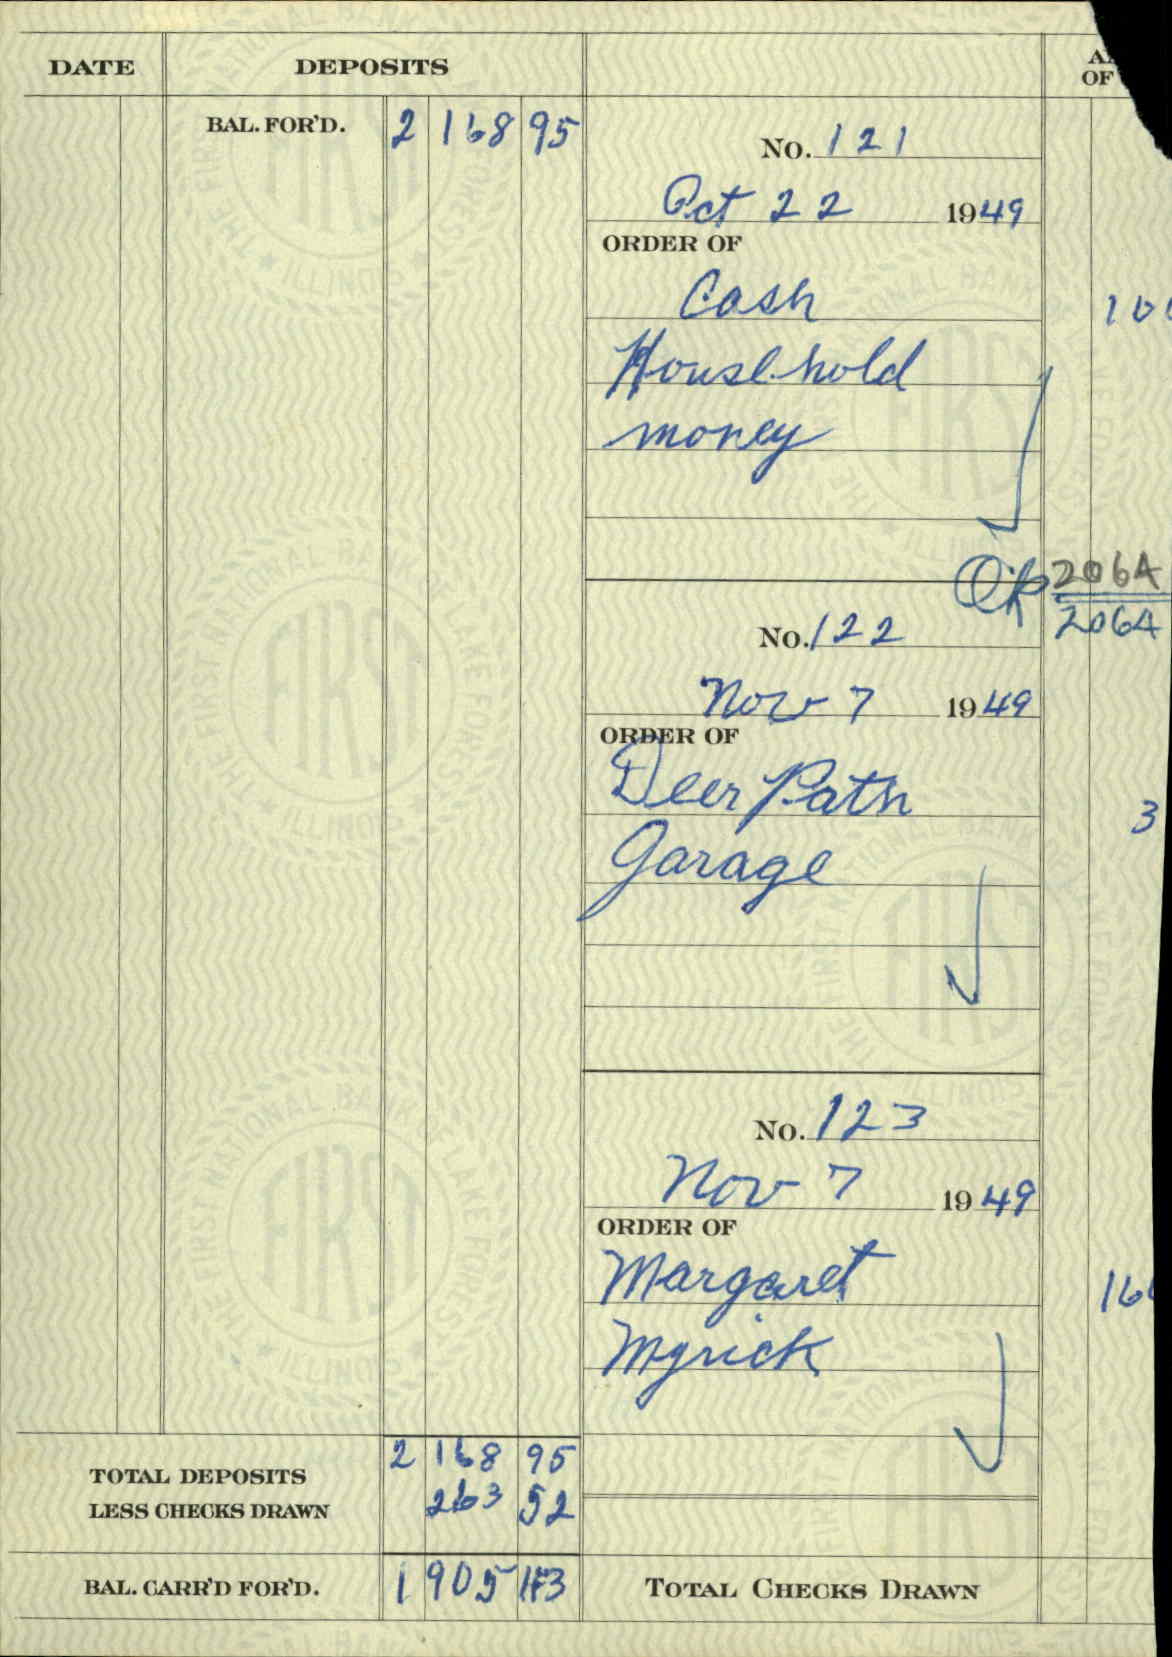 DATE DEPOSITS
OF
BAL. FOR'D. 2 168 95
No. 121
Oct 22 1949
ORDER OF
Cash
Household
money
OK 2064
2064
No. 122
Nov 7 1949
ORDER OF
Deer Path
Garage
3
No. 123
Nov 7 1949
ORDER OF
Margaret
Myrick
TOTAL DEPOSITS 2 168 95
LESS CHECKS DRAWN 263 52
BAL. CARR'D FOR'D. 1 905 43
TOTAL CHECKS DRAWN